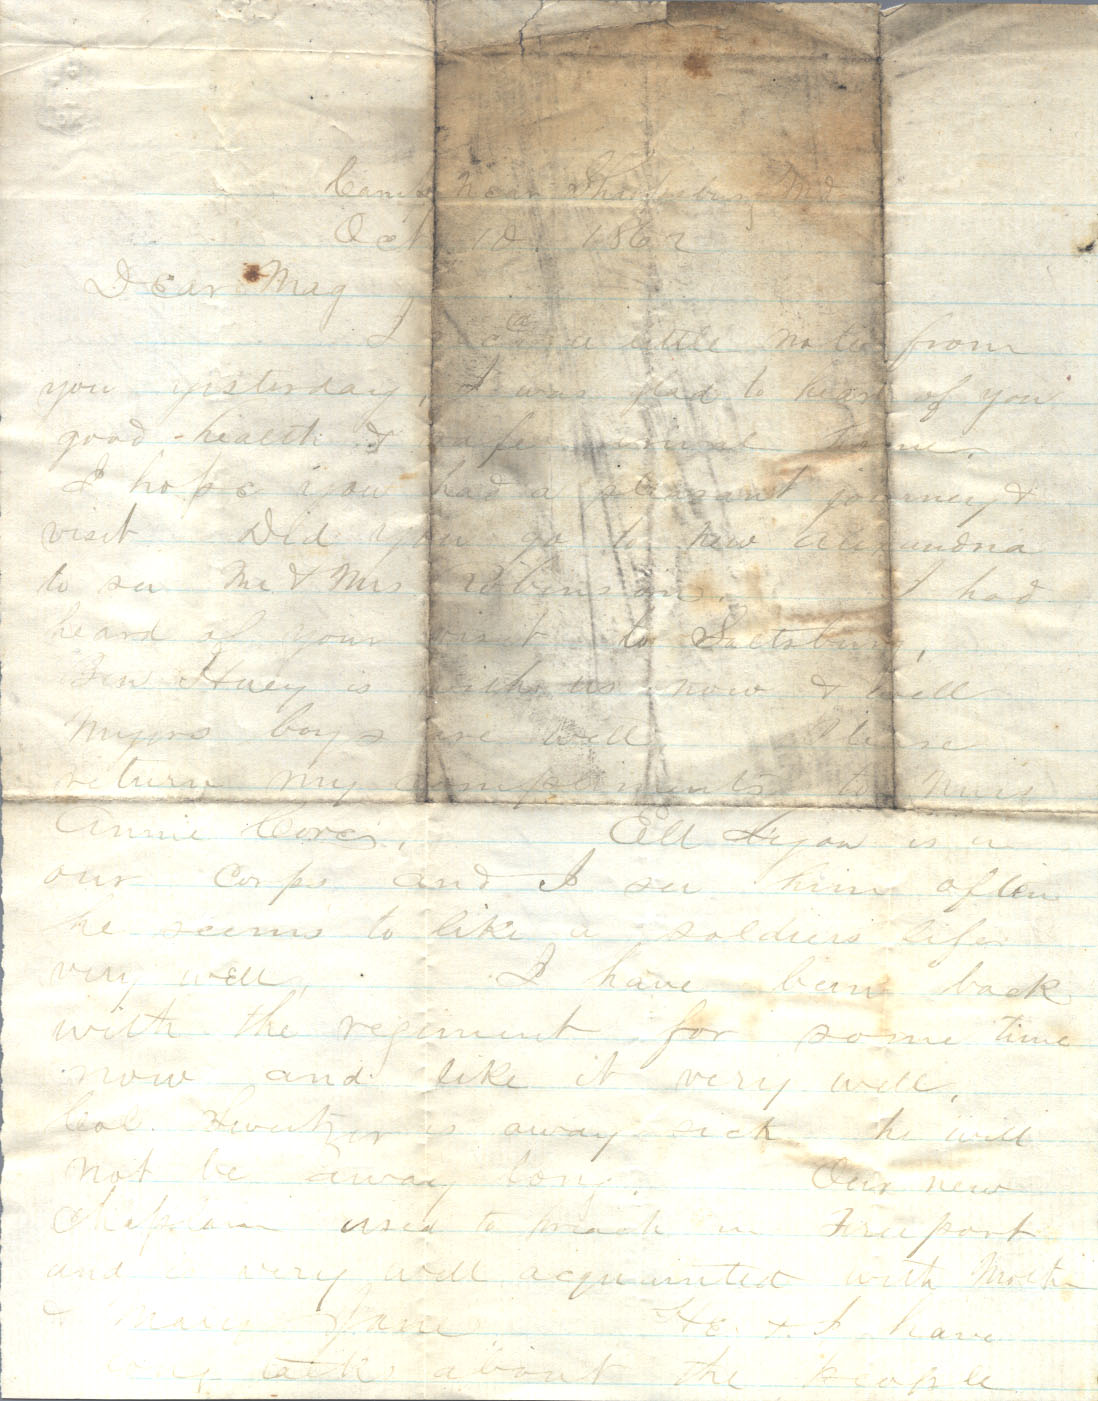 Camp Near Sharpsburg Md
Oct 10 1862
Dear Mag
I recived a little note from
you yesterday, I was glad to hear of you
good health & safe arrival home.
I hope you had a pleasant journey &
visit Did you go to New Alexandria
to see Mr & Mrs Robinsons. I had
heard of your visit to Saltsburg,
Ben Huey is with us now & well
Myers boys are well Please
return my compliments to Miss
Annie
Ell Lyon is in
our Corps and I see him often
he seems to like a soldiers life
very well, I have been back
with the regiment for some time
now and like it very well,
Col. Sweitzer is away sick he will
not be away long. Our new
Chaplain used to preach in Freeport
and is very well acquainted with Mother
& Jane. He & I have
long talks about the people